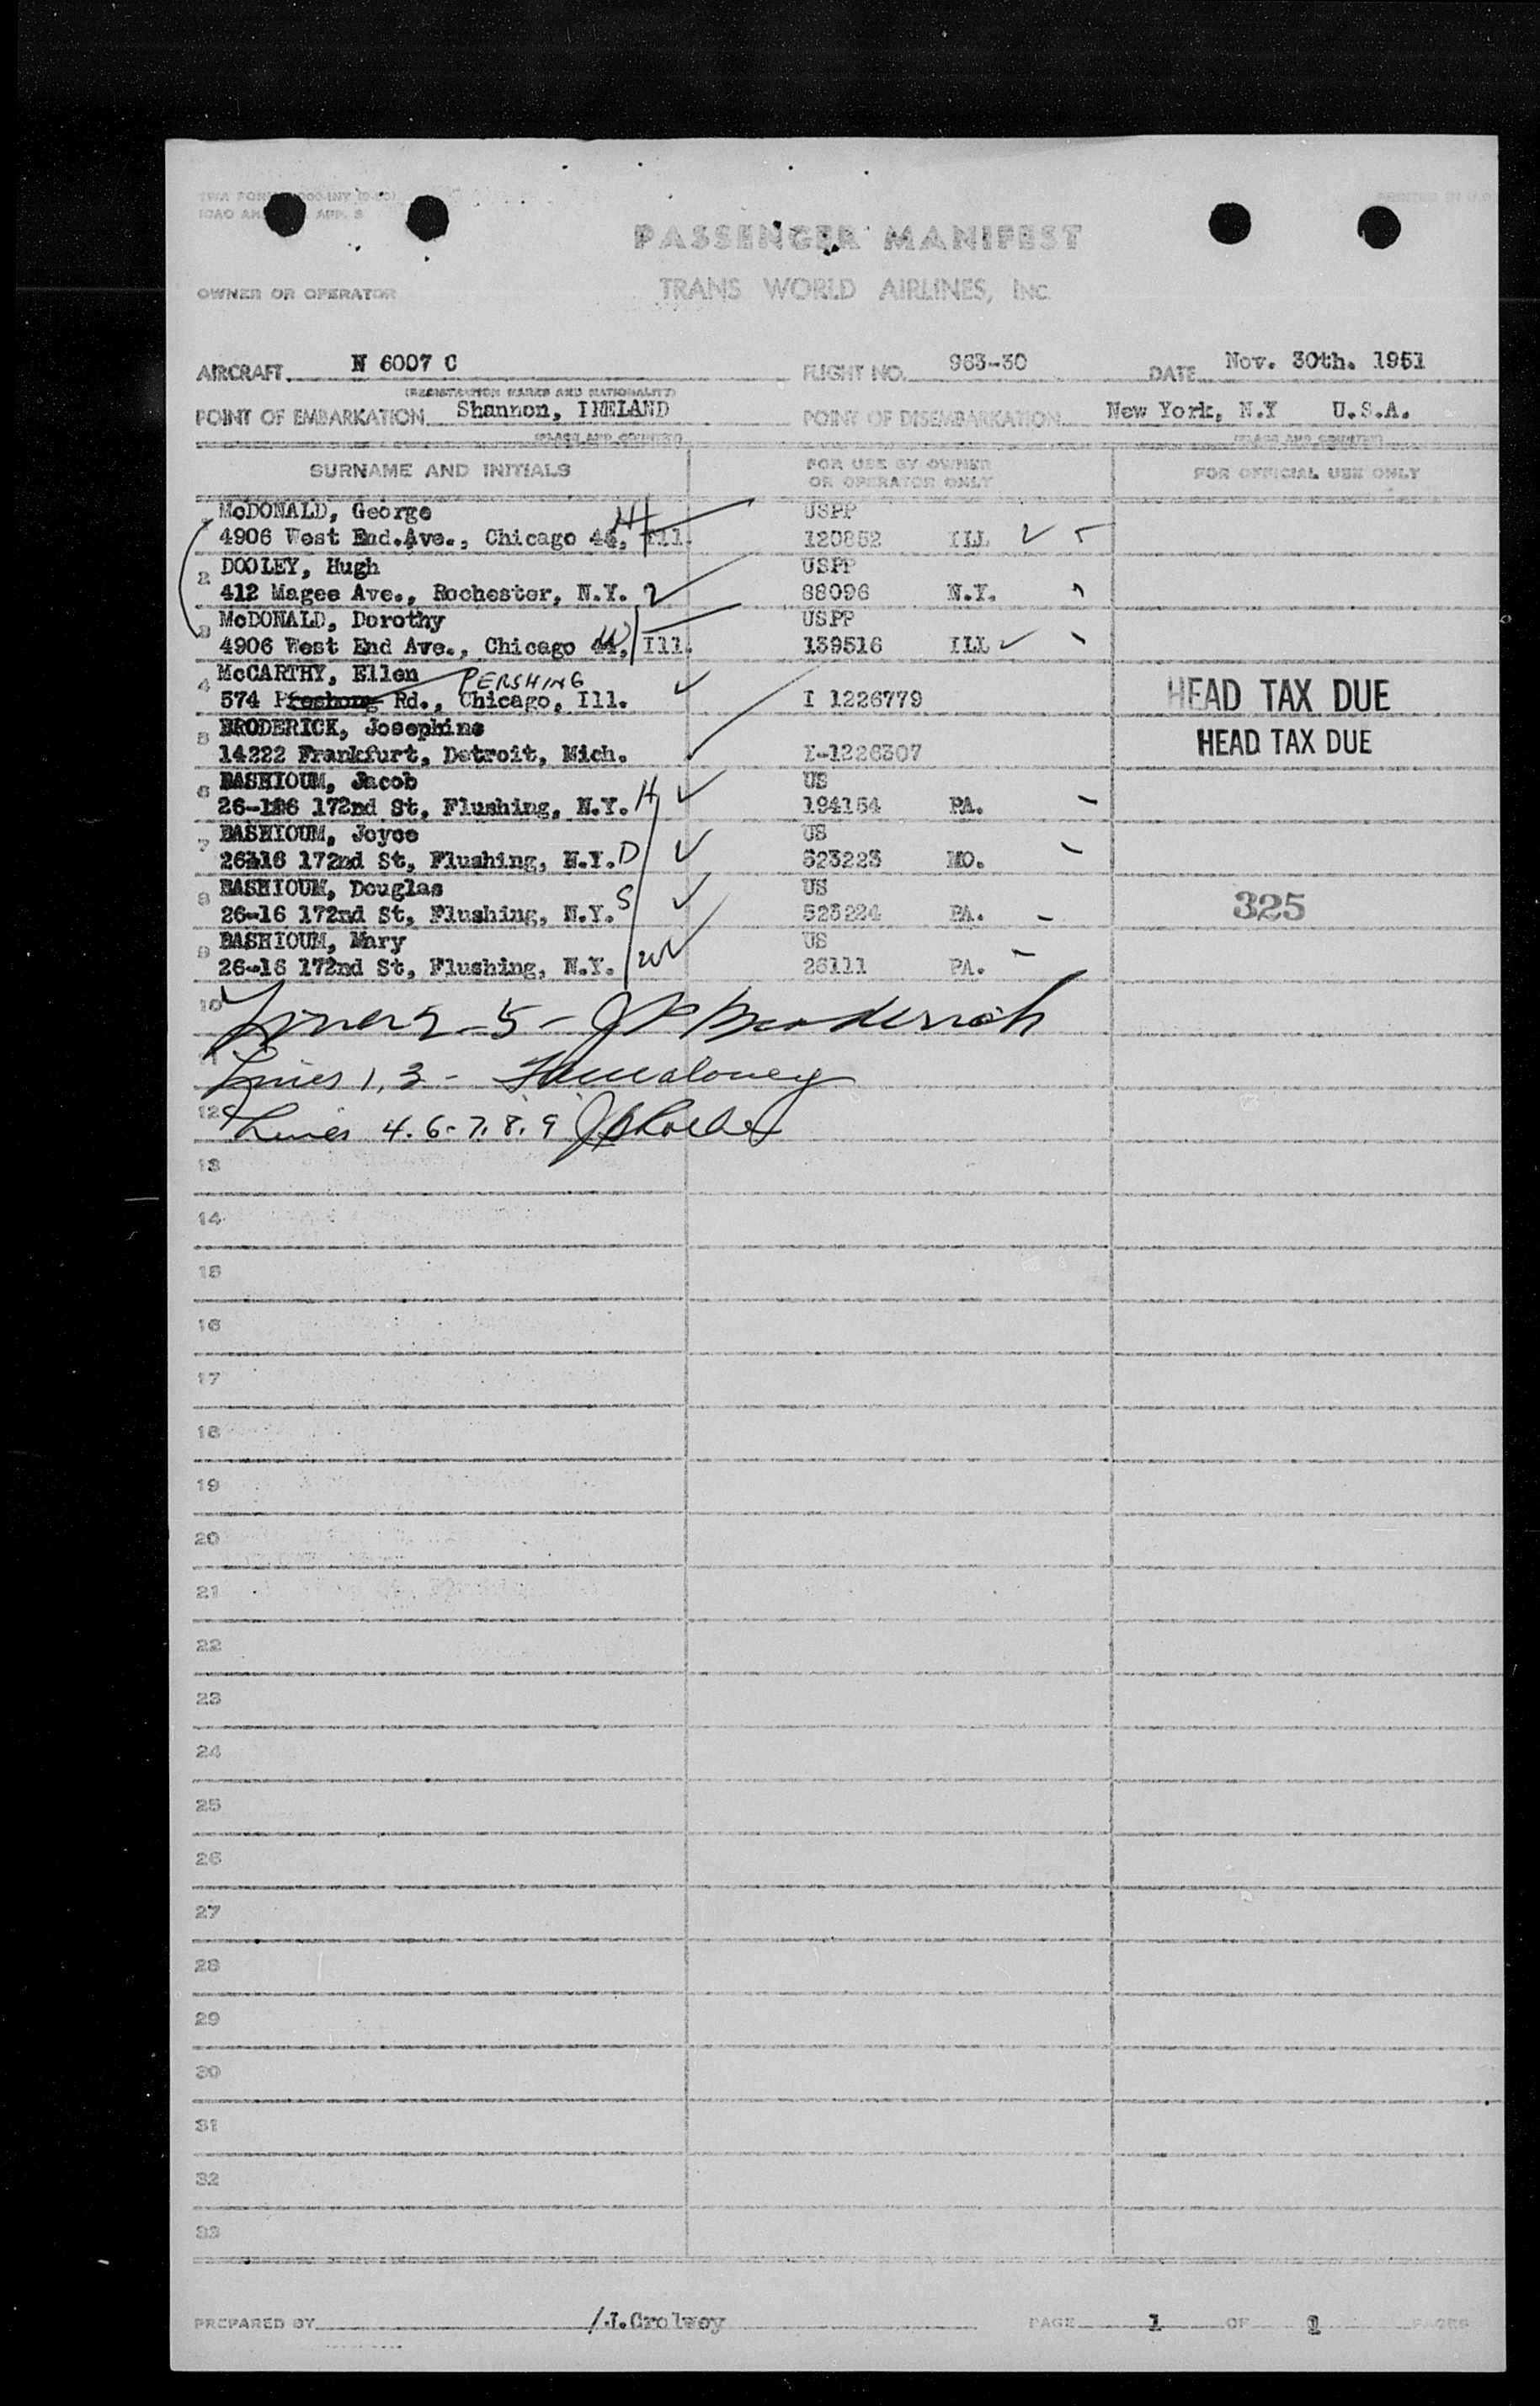 PASSENGER MANIFEST
OWNER OR OPERATOR TRANS WORLD AIRLINES, INC.
AIRCRAFT N 6007 C FLIGHT NO. 963-30 DATE Nov. 30th. 1951
(REGISTRATION MARKS AND NATIONALITY)
POINT OF EMBARKATION Shannon, IRELAND POINT OF DISEMBARKATION New York, N.Y U.S.A.
(PLACE AND COUNTRY) (PLACE AND COUNTRY)
SURNAME AND INITIALS FOR USE BY OWNER OR OPERATOR ONLY FOR OFFICIAL USE ONLY
McDONALD, George USPP
4906 West End.Ave., Chicago 44, Ill. H 120852 ILL
2 DOOLEY, Hugh USPP
412 Magee Ave., Rochester, N.Y. 88096 N.Y.
3 McDONALD, Dorothy USPP
4906 West End Ave., Chicago 44, Ill. W 139516 ILL
4 McCARTHY, Ellen PERSHING
574 Rd., Chicago, Ill. I 1226779 HEAD TAX DUE
5 BRODERICK, Josephine HEAD TAX DUE
14222 Frankfurt, Detroit, Mich. I-1226307
6 BASHIOUM, Jacob US
26-186 172nd St, Flushing, N.Y. H 194154 PA.
7 BASHIOUM, Joyce US
26-16 172nd St, Flushing, N.Y. D 523223 MO.
8 BASHIOUM, Douglas US
26-16 172nd St, Flushing, N.Y. S 523224 PA. 325
9 BASHIOUM, Mary US
26-16 172nd St, Flushing, N.Y. W 26111 PA.
10 Lines 2-5- J Broderick
11 Lines 1, 3 -
12 Lines 4.6-7.8.9
13
14
15
16
17
18
19
20
21
22
23
24
25
26
27
28
29
30
31
32
33
PREPARED BY /J.Crolwey PAGE 1 OF 1 PAGES